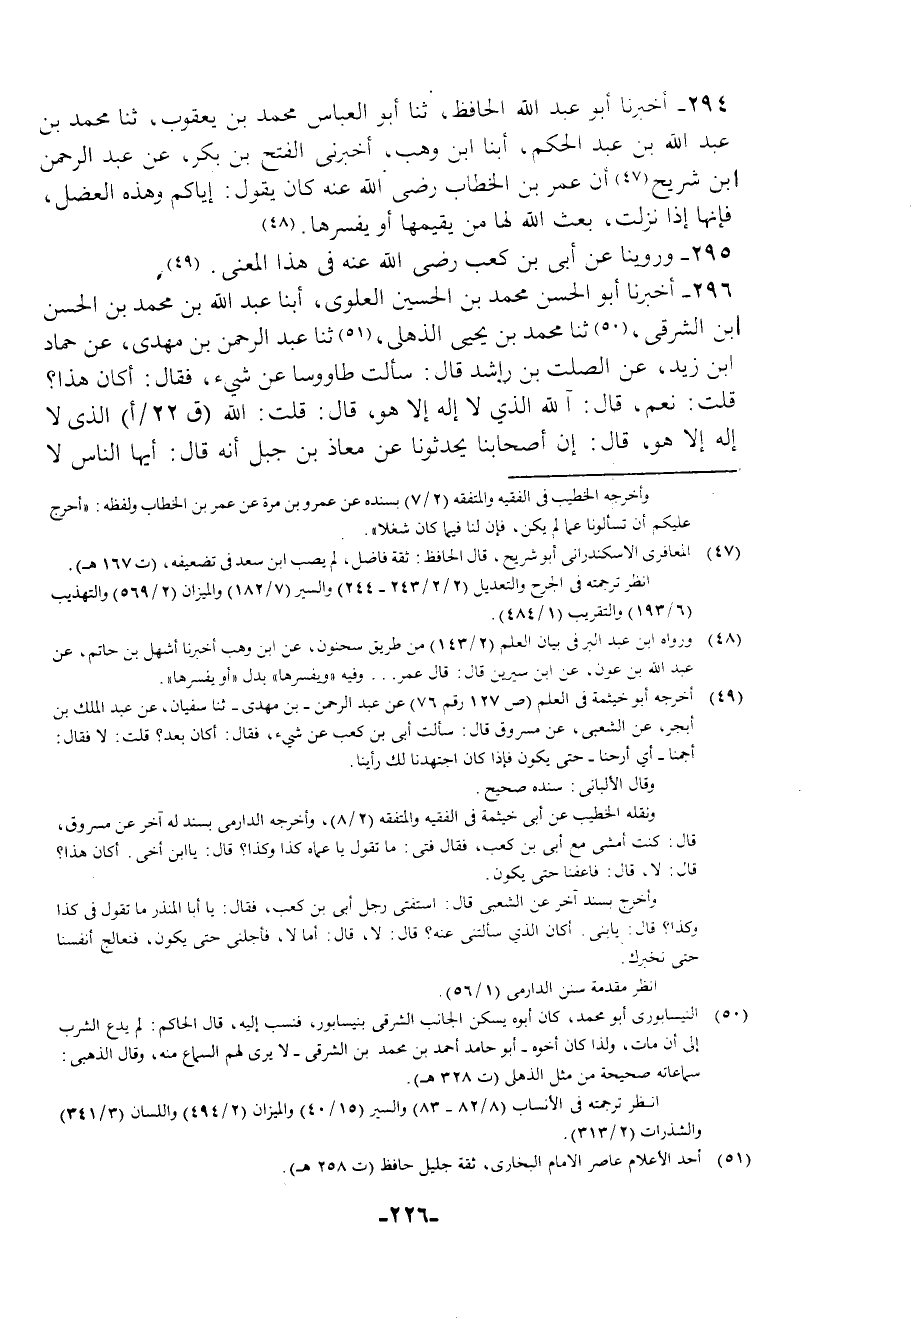 ٢٩٤ـ أخبرنا أبو عبد الله الحافظ، ثنا أبو العباس محمد بن يعقوب، ثنا محمد بن
عبد الله بن عبد الحكم، أبنا ابن وهب، أخبرنى الفتح بن بكر، عن عبد الرحمن
ابن شريح(٤٧) أن عمر بن الخطاب رضى الله عنه كان يقول: إياكم وهذه العضل،
فإنها إذا نزلت، بعث الله لها من يقيمها أو يفسرها. (٤٨)
٢٩٥ـ وروينا عن أبى بن كعب رضى الله عنه فى هذا المعنى. (٤٩)
٢٩٦ـ أخبرنا أبو الحسن محمد بن الحسين العلوى، أبنا عبد الله بن محمد بن الحسن
ابن الشرقى،(٥٠) ثنا محمد بن يحيى الذهلى،(٥١) ثنا عبد الرحمن بن مهدى، عن حماد
ابن زيد، عن الصلت بن راشد قال: سألت طاووسا عن شيء، فقال: أكان هذا؟
قلت: نعم، قال: آ لله الذي لا إله إلا هو، قال: قلت: الله (ق ٢٢/أ) الذى لا
إله إلا هو، قال: إن أصحابنا يحدثونا عن معاذ بن جبل أنه قال: أيها الناس لا
وأخرجه الخطيب فى الفقيه والمتفقه (٧/٢) بسنده عن عمرو بن مرة عن عمر بن الخطاب ولفظه: «أحرج
عليكم أن تسألونا عما لم يكن، فإن لنا فيما كان شغلا».
(٤٧) المعافرى الاسكندرانى أبو شريح، قال الحافظ: ثقة فاضل، لم يصب ابن سعد فى تضعيفه، (ت ١٦٧ هـ).
انظر ترجمته فى الجرح والتعديل (٢٤٣/٢/٢ ـ ٢٤٤) والسير (١٨٢/٧) والميزان (٥٦٩/٢) والتهذيب
(١٩٣/٦) والتقريب (٤٨٤/١).
(٤٨) ورواه ابن عبد البر فى بيان العلم (١٤٣/٢) من طريق سحنون، عن ابن وهب أخبرنا أشهل بن حاتم، عن
عبد الله بن عون، عن ابن سيرين قال: قال عمر... وفيه «ويفسرها» بدل «أو يفسرها».
(٤٩) أخرجه أبو خيثمة فى العلم (ص ١٢٧ رقم ٧٦) عن عبد الرحمن ـ بن مهدى ـ ثنا سفيان، عن عبد الملك بن
أبجر، عن الشعبى، عن مسروق قال: سألت أبى بن كعب عن شيء، فقال: أكان بعد؟ قلت: لا فقال:
أجمنا ـ أي أرحنا ـ حتى يكون فإذا كان اجتهدنا لك رأينا.
وقال الألبانى: سنده صحيح.
ونقله الخطيب عن أبى خيثمة فى الفقيه والمتفقه (٨/٢)، وأخرجه الدارمى بسند له آخر عن مسروق،
قال: كنت أمشى مع أبى بن كعب، فقال فتى: ما تقول يا عماه كذا وكذا؟ قال: ياابن أخى. أكان هذا؟
قال: لا، قال: فاعفنا حتى يكون.
وأخرج بسند آخر عن الشعبى قال: استفتى رجل أبى بن كعب، فقال: يا أبا المنذر ما تقول فى كذا
وكذا؟ قال: يابنى. أكان الذي سألتنى عنه؟ قال: لا، قال: أما لا، فأجلنى حتى يكون، فنعالج أنفسنا
حتى نخبرك.
انظر مقدمة سنن الدارمى (٥٦/١).
(٥٠) النيسابورى أبو محمد، كان أبوه يسكن الجانب الشرقى بنيسابور، فنسب إليه، قال الحاكم: لم يدع الشرب
إلى أن مات، ولذا كان أخوه ـ أبو حامد أحمد بن محمد بن الشرقى ـ لا يرى لهم السماع منه، وقال الذهبى:
سماعاته صحيحة من مثل الذهلى (ت ٣٢٨ هـ).
انظر ترجمته فى الأنساب (٨٢/٨ ـ ٨٣) والسير (٤٠/١٥) والميزان (٤٩٤/٢) واللسان (٣٤١/٣)
والشذرات (٣١٣/٢).
(٥١) أحد الأعلام عاصر الامام البخارى، ثقة جليل حافظ (ت ٢٥٨ هـ).
ـ٢٢٦ـ